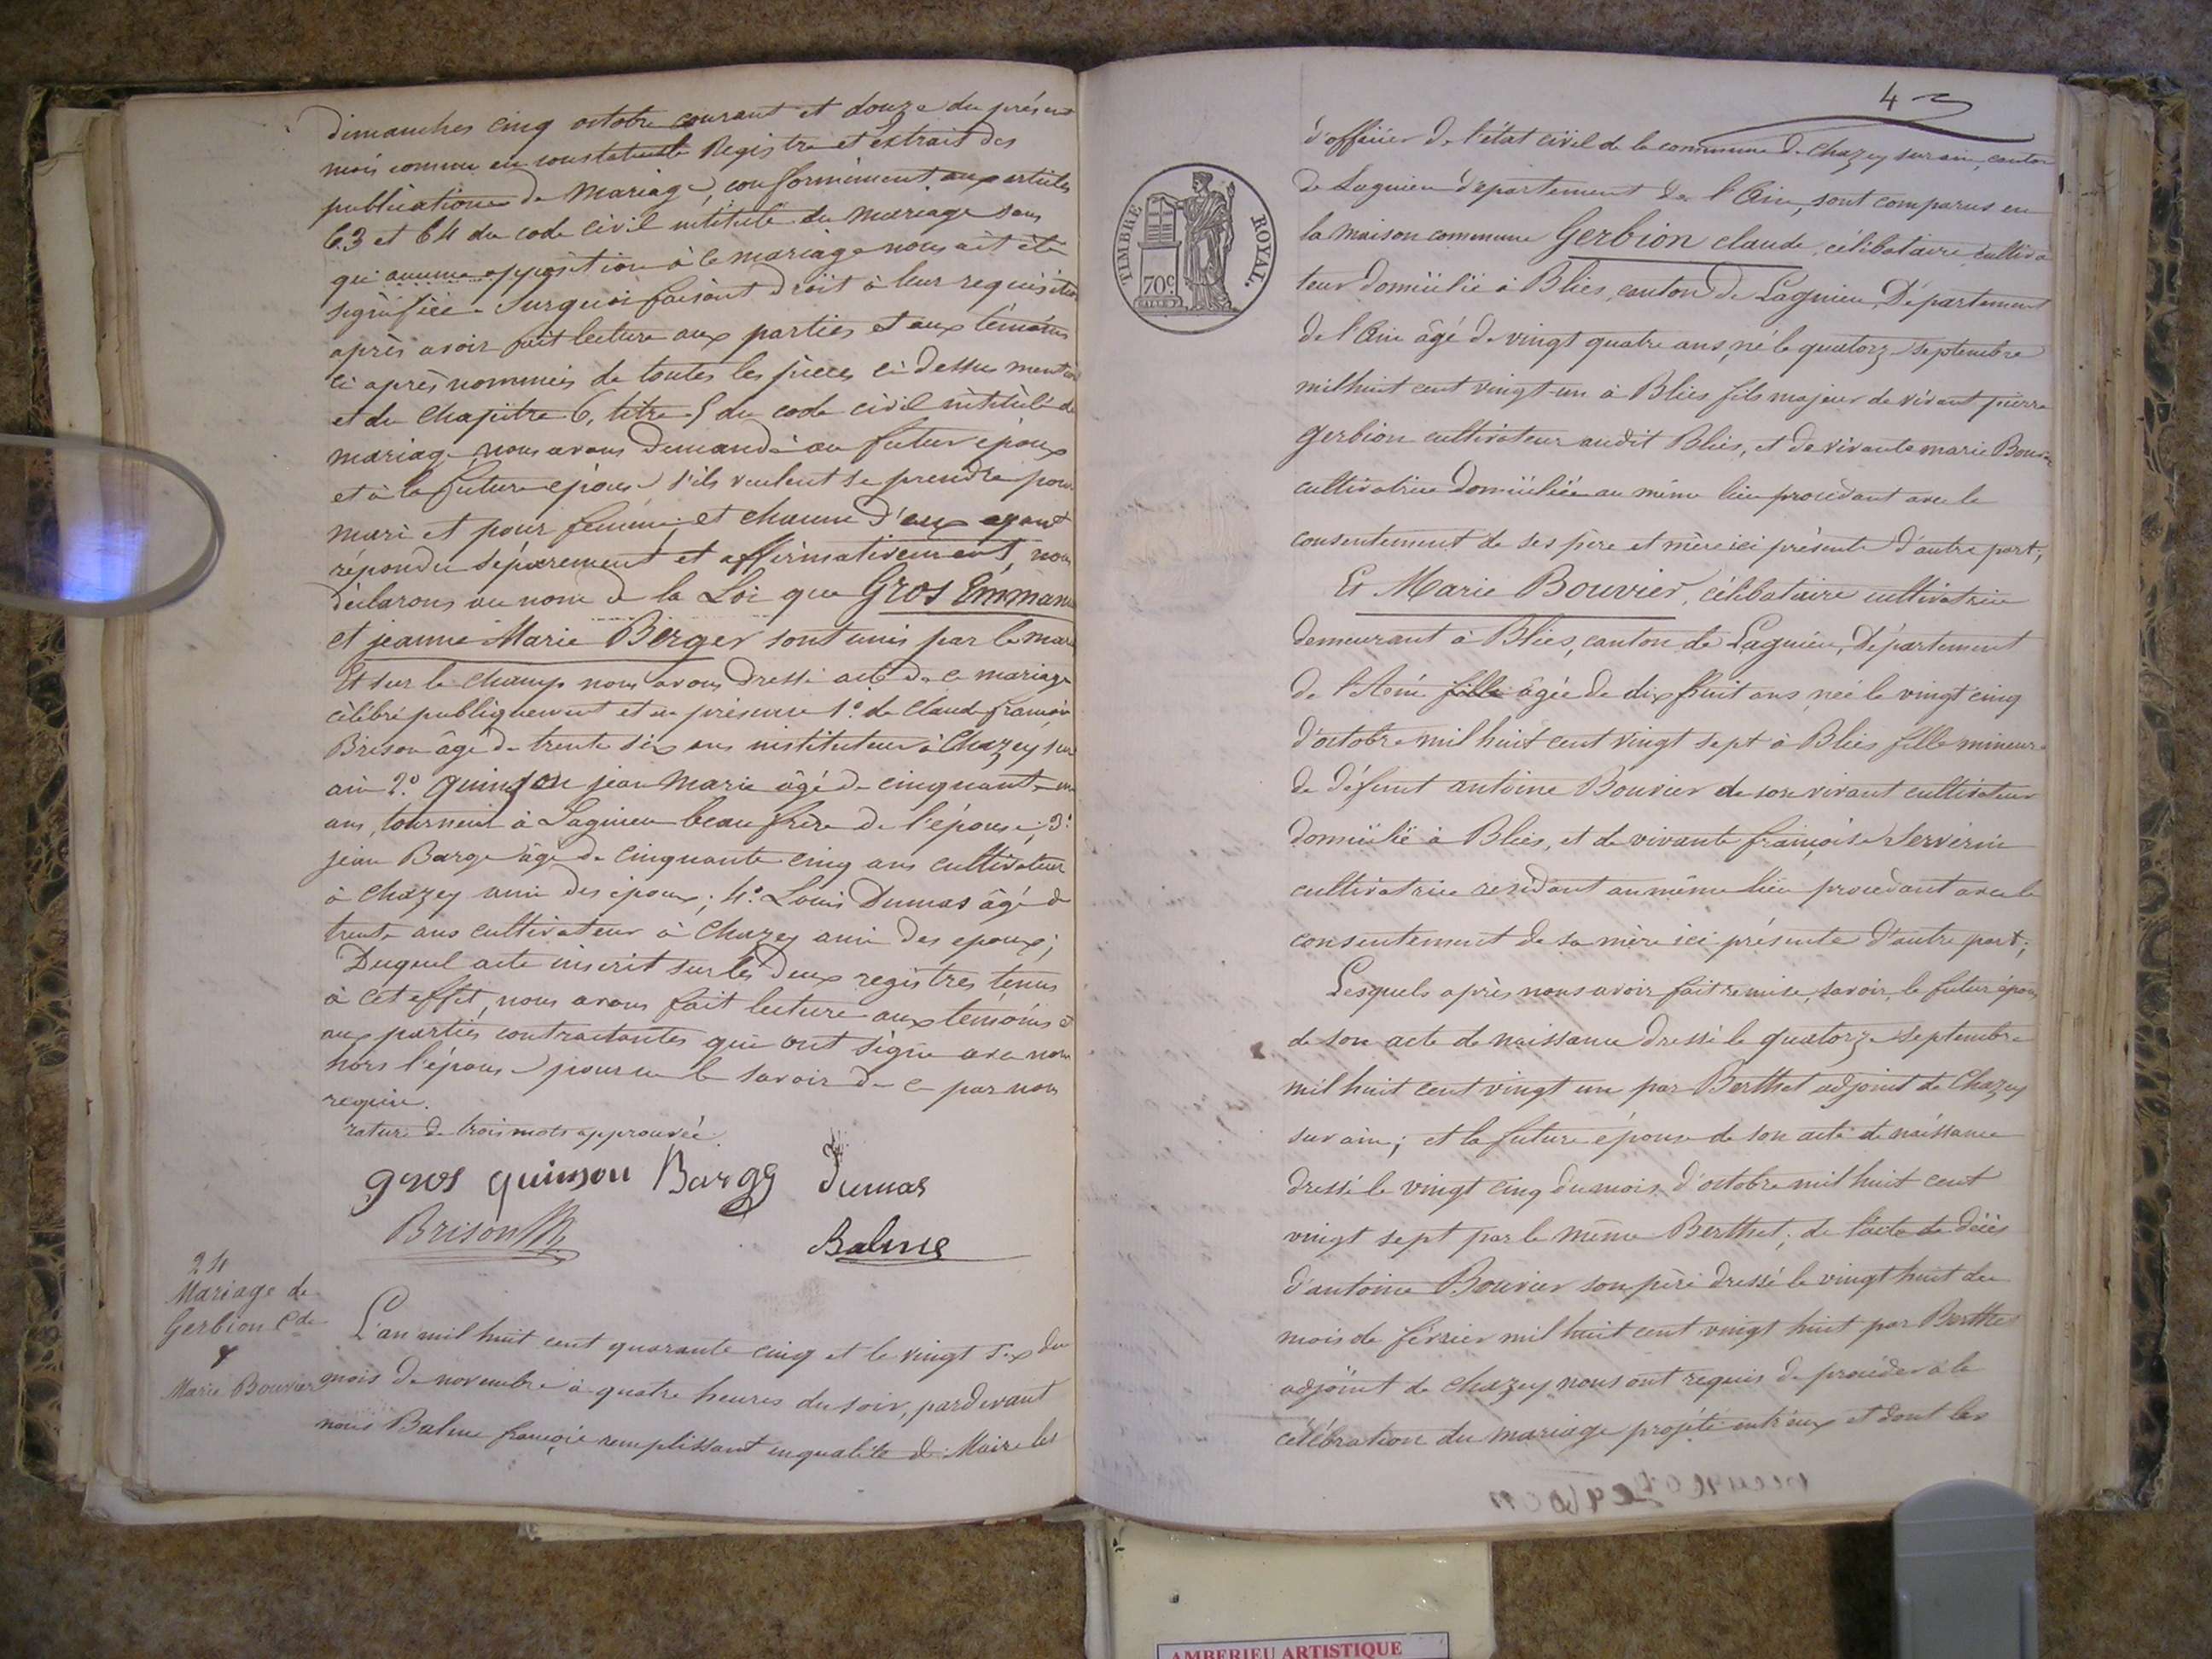 dimanches cinq octobre courant et douze du présent
mois comme en constatent le Registre et extrait des
publications de mariage, conformément aux articles
63 et 64 du code civil intitulé du mariage sans
qu'aucune opposition à ce mariage nous ait été
signifiée. Surquoi faisant droit à leur requisition
après avoir fait lecture aux parties et aux témoins
ci après nommés de toutes les pièces ci dessus ment
et du chapitre 6, titre 5 du code civil intitulé du
mariage nous avons demandé au futur époux
et à la future épouse s'ils veulent se prendre pour
mari et pour femme; et chacun d'eux ayant
répondu séparement et affirmativement, nous
déclarons au nom de la Loi que Gros Emman
et jeanne Marie Berger sont unis par le mari
Et sur le champ nous avons dressé acte de ce mariage
célébré publiquement et en présence 1º. de Claude françois
Brison âgé de trente six ans instituteur à Chazey sur
ain 2º. quinson jean marie âgé de cinquante un
ans, tourneur à Lagnieu beau frère de l'épouse; 3º.
jean Barge âgé de cinquante cinq ans cultivateur
à Chazey ami des époux; 4º. Louis Dumas âgé de
trente ans cultivateur à Chazey ami des epoux;
Duquel acte inscrit sur les deux registres tenus
à cet effet, nous avons fait lecture aux temoins et
aux parties contractantes qui ont signé avec nous
hors l'épouse pour ne le savoir de ce par nous
requise.
rature de trois mots approuvée
gros quinson Barge Dumas
Brison
Balme
24
Mariage de
Gerbion Cde
&
Marie Bouvier
L'an mil huit cent quarante cinq et le vingt six du
mois de novembre à quatre heures du soir, pardevant
nous Balme françois remplissant en qualité de Maire les
4
d'officier de l'état civil de la commune de Chazey sur ain, canton
de Lagnieu département de l'Ain, sont comparus en
la maison commune Gerbion claude, célibataire cultiva
teur domicilié à Blies, canton de Lagnieu, Département
de l'Ain âgé de vingt quatre ans, né le quatorze septembre
mil huit cent vingt-un à Blies fils majeur de vivant pierre
gerbion cultivateur audit Blies, et de vivante marie Bouvier
cultivatrice domiciliée au même lieu procédant avec le
consentement de ses père et mère ici présents d'autre part;
Et Marie Bouvier, célibataire cultivatrice
demeurant à Blies, canton de Lagnieu, Département
de l'Ain fille âgée de dix huit ans née le vingt cinq
d'octobre mil huit cent vingt sept à Blies fille mineure
de défunt antoine Bouvier de son vivant cultivateur
domicilié à Blies, et de vivante françoise Serverin
cultivatrice residant au même lieu procedant avec le
consentement de sa mère ici présente d'autre part;
Lesquels après nous avoir fait remise, savoir, le futur époux
de son acte de naissance dressé le quatorze septembre
mil huit cent vingt un par Berthet adjoint de Chazey
sur ain; et la future épouse de son acte de naissance
dressé le vingt cinq du mois d'octobre mil huit cent
vingt sept par le même Berthet; de l'acte de décès
d'antoine Bouvier son père dressé le vingt huit du
mois de février mil huit cent vingt huit par Berthet
adjoint de chazey nous ont requis de procéder à la
célébration du mariage projeté entr'eux et dont les
TIMBRE ROYAL.
70c
AMBERIEU ARTISTIQUE